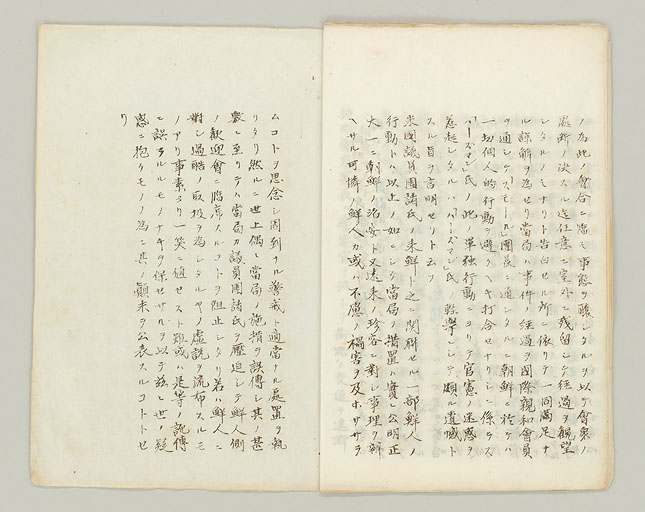 ノ為此ノ會合ニ臨ミ事態ヲ醸シタルヲ以テ會衆ノ
處断ノ決スル迄任意ニ室外ニ残留シテ経過ヲ観望
シタルノミナリト告白セル所ニ依リテ一同満足ナ
ル諒解ヲ為セリ當局ハ事件ノ経過ヲ國際親和會員
ヲ通シテスモール團長ニ通シタルニ朝鮮ニ於テハ
一切個人的行動ヲ避クヘキ打合セナリシニ係ラス
ハースマン氏ノ此ノ單独行動ニヨリテ官憲ノ迷惑ヲ
惹起シタルハハースマン氏ノ軽擧ニシテ頗ル遺憾ト
スル旨ヲ言明セリト云フ
米國議員團諸氏ノ来鮮ト之ニ関聯セル一部鮮人ノ
行動トハ以上ノ如シ而シテ當局ノ措置ハ實ニ公明正
大一ニ朝鮮ノ治安ト又遠来ノ珍客ニ對シ事理ヲ辨
ヘサル可憐ノ鮮人カ或ハ不慮ノ禍害ヲ及ホササラ
ムコトヲ思念シ周到ナル警戒ト適當ナル處置ヲ執
リタリ然ルニ世上偶々當局ノ施措ヲ誤傳シ其ノ甚
敷ニ至リテハ當局カ議員團諸氏ヲ壓迫シテ鮮人側
ノ歓迎會ニ臨席スルコトヲ阻止シタリ若ハ鮮人ニ
對シ過酷ノ取扱ヲ為シタルヤノ虚説ヲ流布スルモ
ノアリ事素ヨリ一笑ニ値セスト雖或ハ是等ノ訛傳
ニ誤ラルルモノナキヲ保セサルヲ以テ茲ニ世ノ疑
惑ヲ抱クモノノ為ニ其ノ顛末ヲ公表スルコトトセ
リ